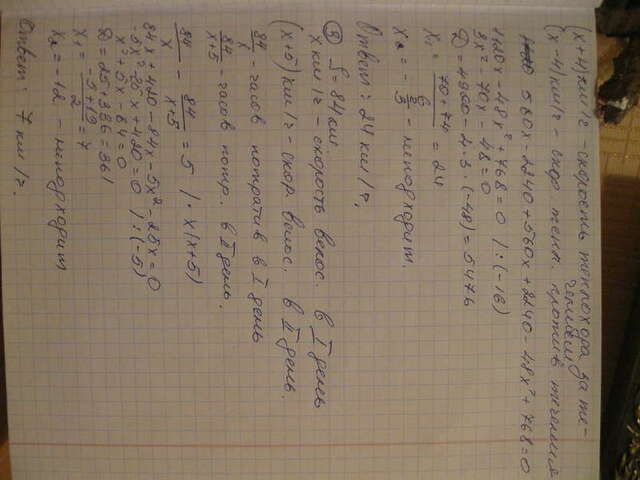 (x+4) км/г - скорость теплохода за те-
чением
(x-4) км/г - скор. тепл. против течения
560x - 2240 + 560x + 2240 - 48x² + 768 = 0
1120x - 48x² + 768 = 0 | : (-16)
3x² - 70x - 48 = 0
D = 4900 - 4·3·(-48) = 5476
x₁ = (70+74)/6 = 24
x₂ = -2/3 - неподходит.
Ответ: 24 км/г.
② S = 84 км
x км/г - скорость велос. в I день
(x+5) км/г - скор. велос. в II день.
84/x - часов потратив в I день
84/(x+5) - часов потр. в II день.
84/x - 84/(x+5) = 5 | · x(x+5)
84x + 420 - 84x - 5x² - 25x = 0
-5x² - 25x + 420 = 0 | : (-5)
x² + 5x - 84 = 0
D = 25 + 336 = 361
x₁ = (-5+19)/2 = 7
x₂ = -12 - неподходит
Ответ: 7 км/г.